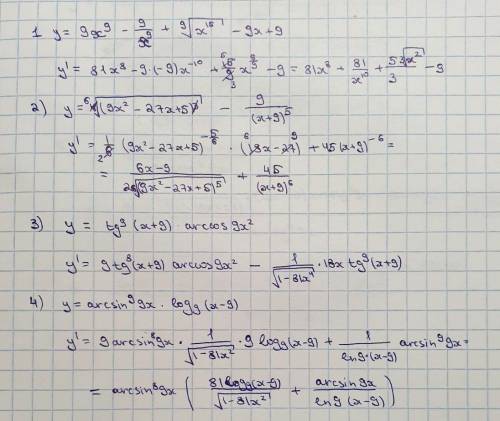 1 y = 9x⁹ - 9/x⁹ + ⁹√x¹⁵ - 9x + 9
y' = 81x⁸ - 9·(-9)x⁻¹⁰ + 15/9 x^(6/9) - 9 = 81x⁸ + 81/x¹⁰ + 5∛x²/3 - 9
2) y = ⁶√(9x² - 27x + 5) - 9/(x+9)⁵
y' = 1/6 (9x² - 27x + 5)^(-5/6) · (18x - 27) + 45(x+9)⁻⁶ =
= (6x - 9)/(2 ⁶√(9x² - 27x + 5)⁵) + 45/(x+9)⁶
3) y = tg⁹(x+9) · arccos 9x²
y' = 9tg⁸(x+9) arccos 9x² - 1/√(1-81x⁴) · 18x tg⁹(x+9)
4) y = arcsin⁹9x · log₉(x-9)
y' = 9arcsin⁸9x · 1/√(1-81x²) · 9 log₉(x-9) + 1/(ln9·(x-9)) arcsin⁹9x =
= arcsin⁸9x (81log₉(x-9)/√(1-81x²) + arcsin9x/(ln9(x-9)))